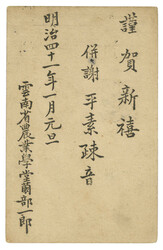 謹賀新禧
併謝平素疎音
明治四十一年一月元旦
雲南省農業學堂薗部一郎